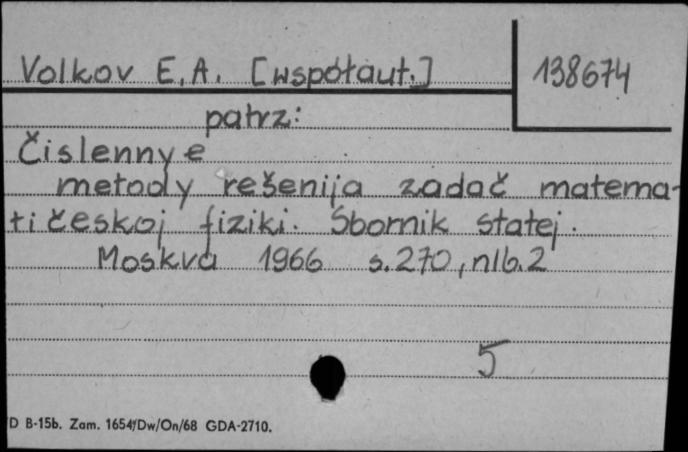 Volkov E.A. [współaut.] 138674
patrz:
Čislennye
metody rešenija zadač matema-
tičeskoj fiziki. Sbornik statej.
Moskva 1966 s.270, nlb.2
5
D B-15b. Zam. 1654/Dw/On/68 GDA-2710.